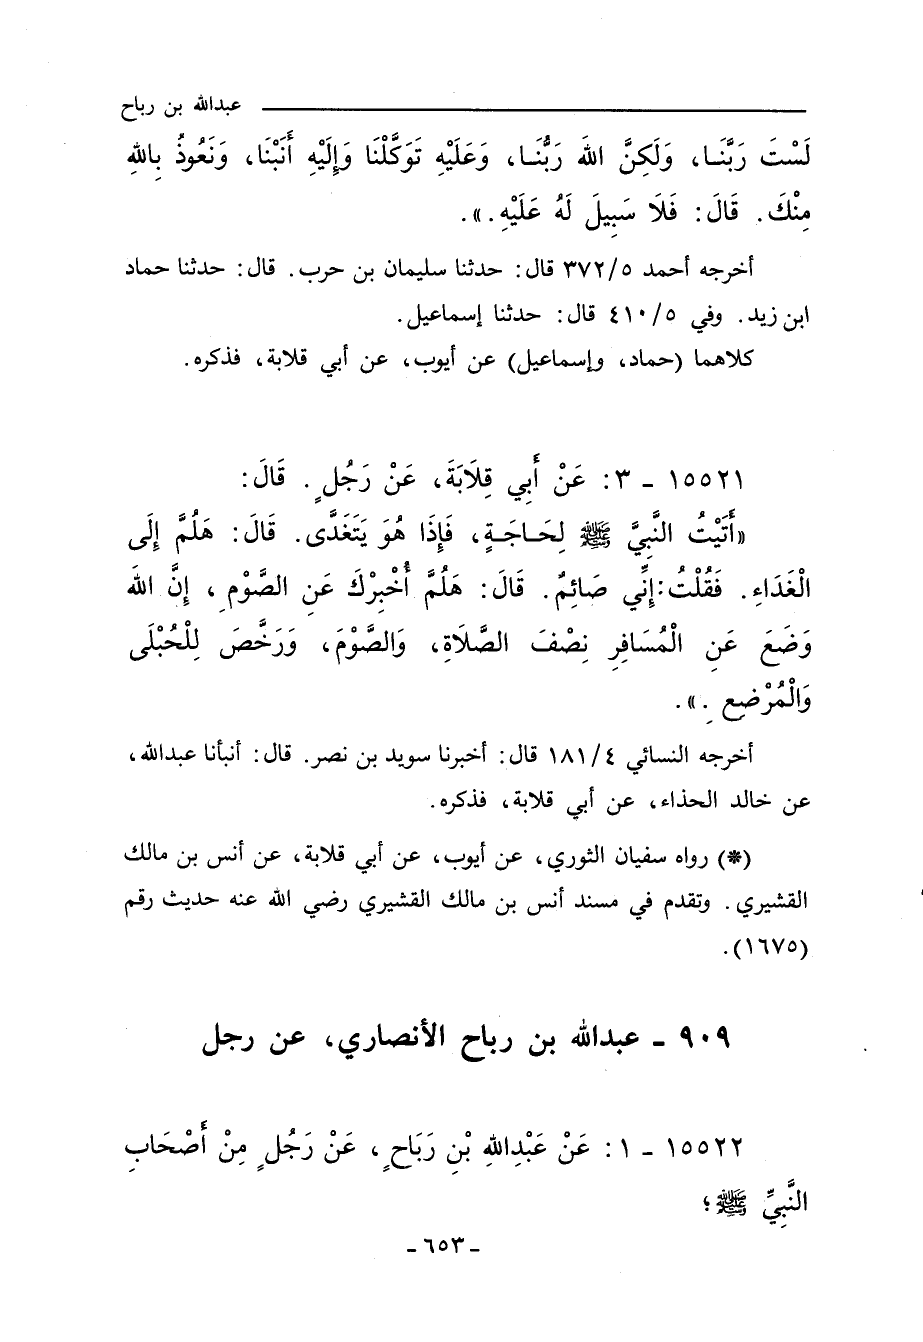 عبدالله بن رباح
لَسْتَ رَبَّنَـا، وَلَكِنَّ اللهَ رَبُّنَـا، وَعَلَيْهِ تَوَكَّلْنَا وَإِلَيْهِ أَنَبْنَا، وَنَعُوذُ بِاللهِ
مِنْكَ. قَالَ: فَلَا سَبِيلَ لَهُ عَلَيْهِ.».
أخرجه أحمد ٣٧٢/٥ قال: حدثنا سليمان بن حرب. قال: حدثنا حماد
ابن زيد. وفي ٤١٠/٥ قال: حدثنا إسماعيل.
كلاهما (حماد، وإسماعيل) عن أيوب، عن أبي قلابة، فذكره.
١٥٥٢١ - ٣: عَنْ أَبِي قِلَابَةَ، عَنْ رَجُلٍ. قَالَ:
«أَتَيْتُ النَّبِيَّ ﷺ لِحَـاجَـةٍ، فَإِذَا هُوَ يَتَغَدَّى. قَالَ: هَلُمَّ إِلَى
الْغَدَاءِ. فَقُلْتُ: إِنِّي صَائِمٌ. قَالَ: هَلُمَّ أُخْبِرْكَ عَنِ الصَّوْمِ، إِنَّ اللهَ
وَضَعَ عَنِ الْمُسَافِرِ نِصْفَ الصَّلَاةِ، وَالصَّوْمَ، وَرَخَّصَ لِلْحُبْلَى
وَالْمُرْضِعِ.».
أخرجه النسائي ١٨١/٤ قال: أخبرنا سويد بن نصر. قال: أنبأنا عبدالله،
عن خالد الحذاء، عن أبي قلابة، فذكره.
(*) رواه سفيان الثوري، عن أيوب، عن أبي قلابة، عن أنس بن مالك
القشيري. وتقدم في مسند أنس بن مالك القشيري رضي الله عنه حديث رقم
(١٦٧٥).
٩٠٩ - عبدالله بن رباح الأنصاري، عن رجل
١٥٥٢٢ - ١: عَنْ عَبْدِاللهِ بْنِ رَبَاحٍ، عَنْ رَجُلٍ مِنْ أَصْحَابِ
النَّبِيِّ ﷺ؛
- ٦٥٣ -